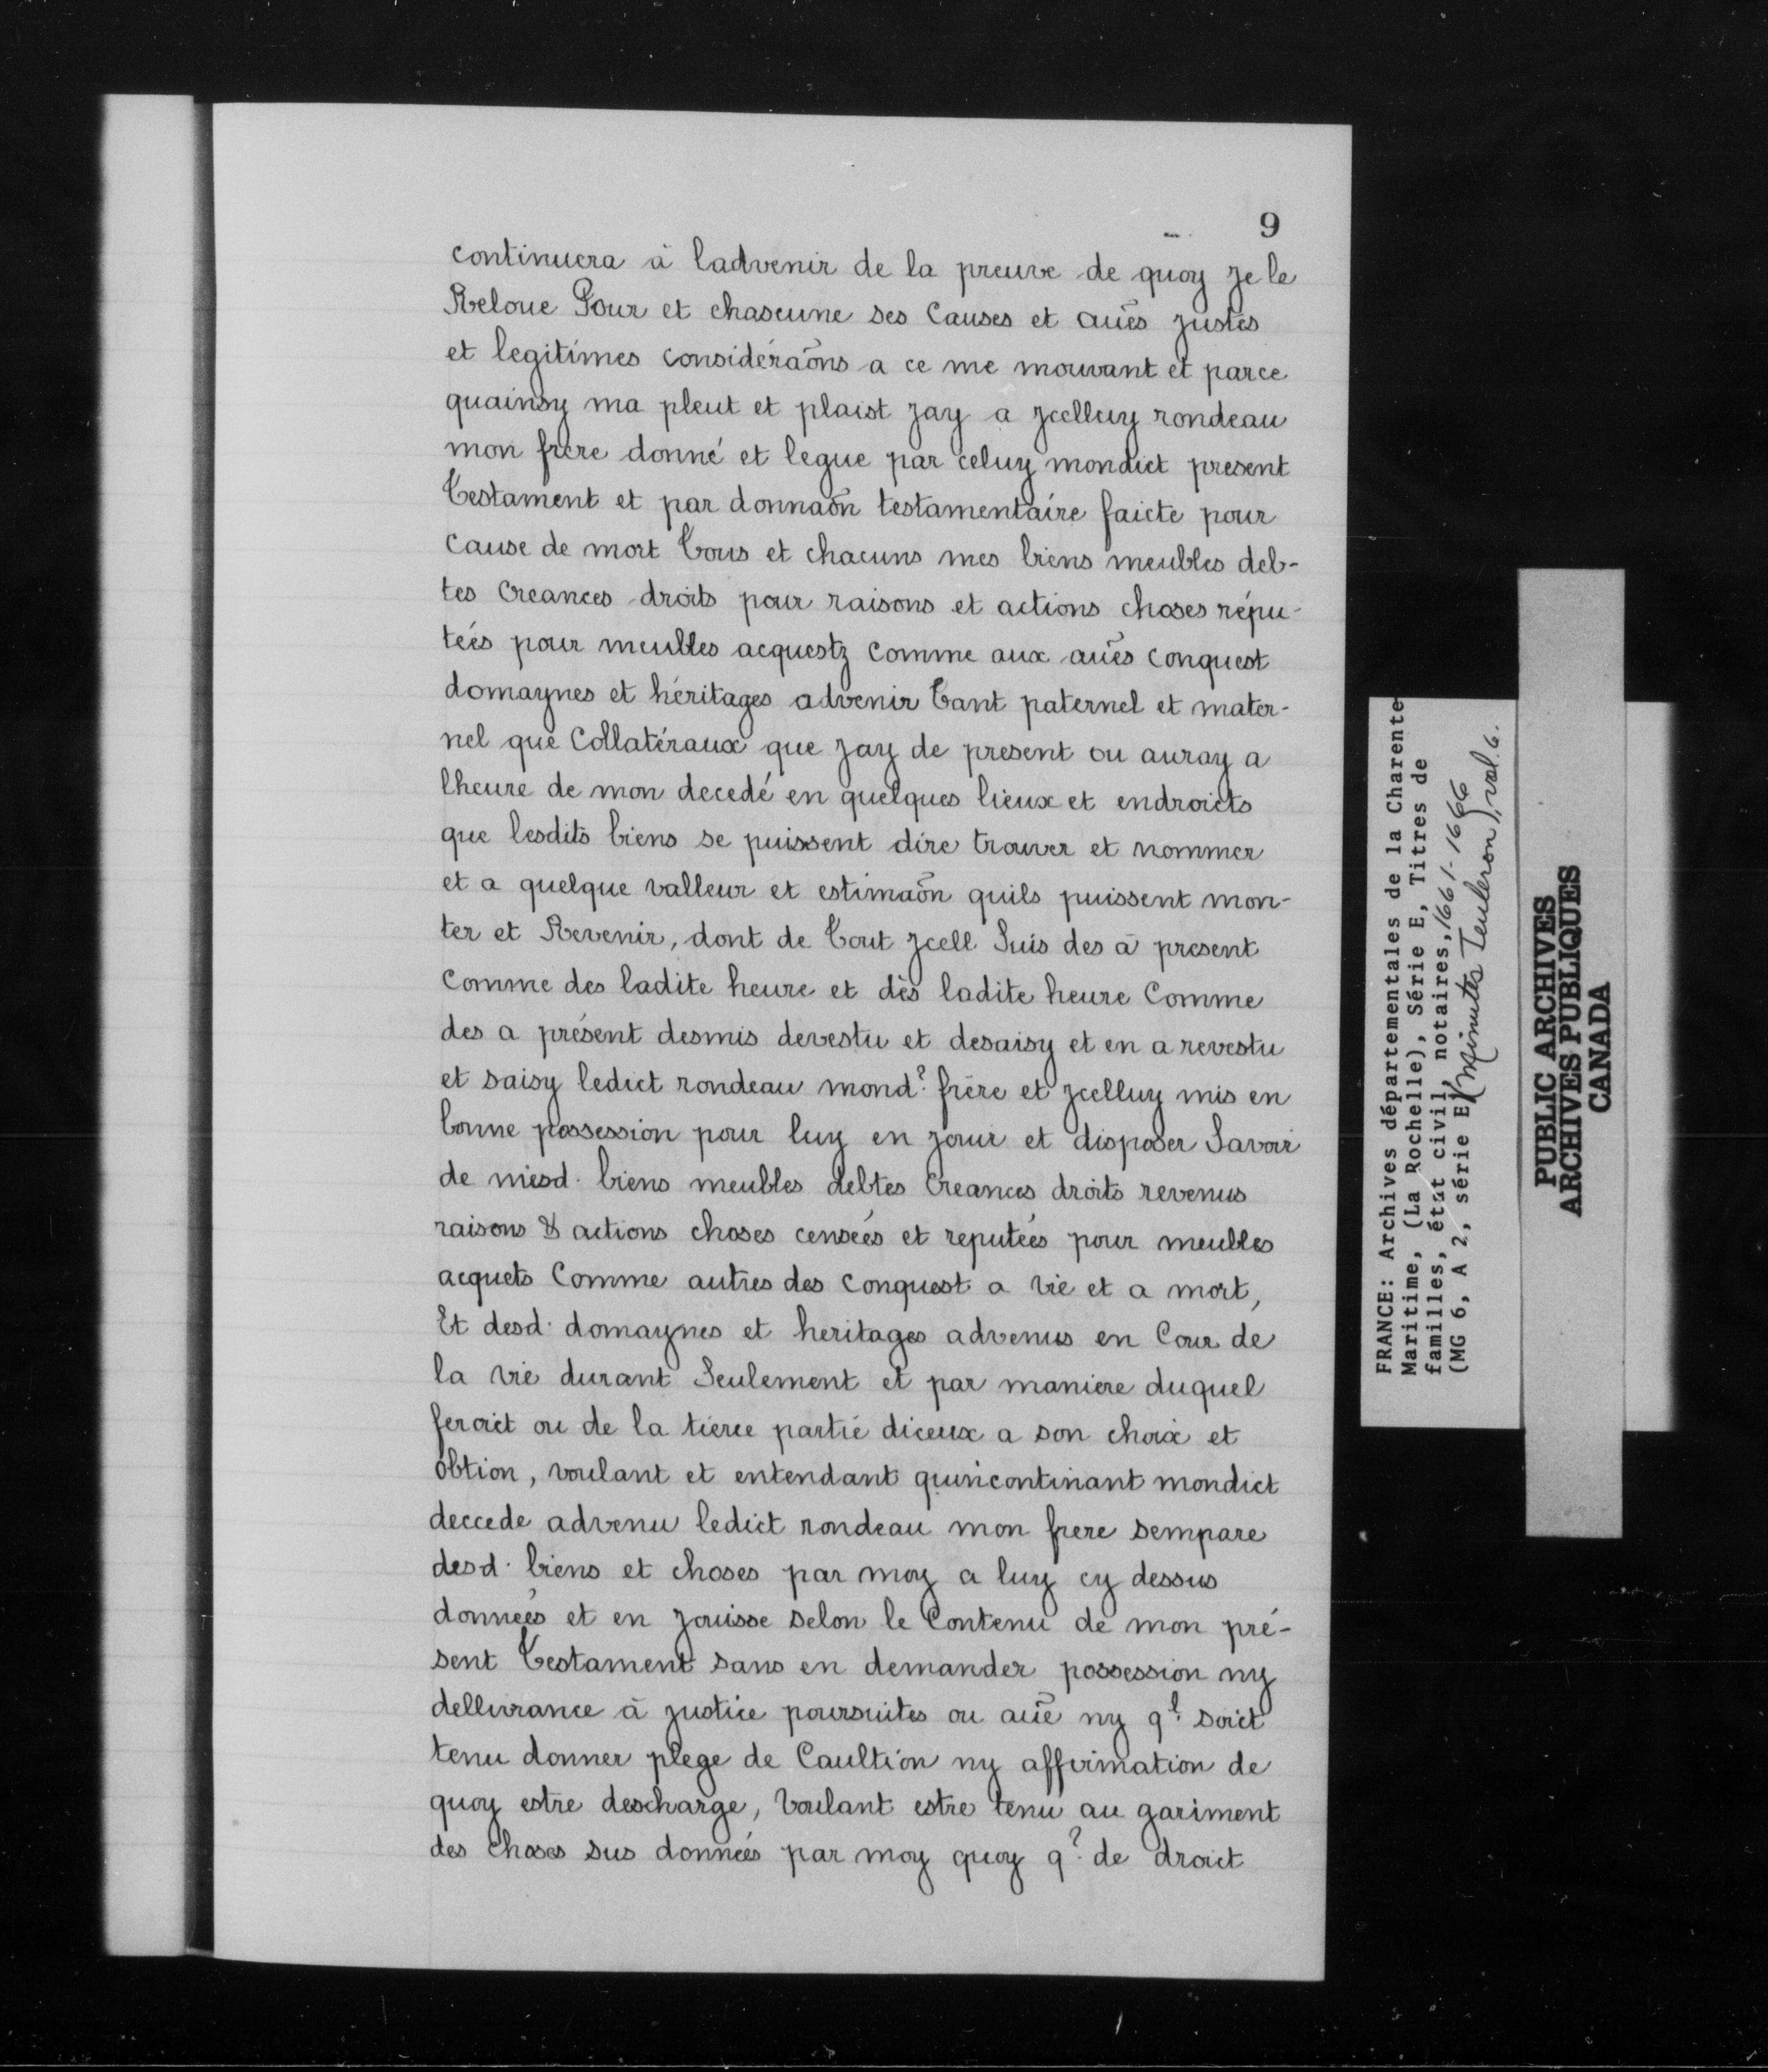 9
continuera à ladvenir de la preuve de quoy je le
Reloue Pour et chascune ses Causes et aũẽs justes
et legitimes considéraõns a ce me mouvant et parce
quainsy ma pleut et plaist jay a jcelluy rondeau
mon frère donné et legue par celuy mondict present
Testament et par donnaõn testamentaire faicte pour
cause de mort Tous et chacuns mes biens meubles deb-
tes Creances droits pour raisons et actions choses répu-
teés pour meubles acquestz comme aux aũẽs conquest
domaynes et héritages advenir Tant paternel et mater-
nel que Collatéraux que jay de present ou auray a
lheure de mon decedé en quelques lieux et endroicts
que lesdits biens se puissent dire trouver et nommer
et a quelque valleur et estimaõn quils puissent mon-
ter et Revenir, dont de Tout jcell Suis des à present
Comme des ladite heure et dès ladite heure Comme
des a présent desmis devestu et desaisy et en a revestu
et saisy ledict rondeau mond? frère et jcelluy mis en
bonne possession pour luy en jouir et disposer Savoir
de mesd. biens meubles debtes Creances droits revenus
raisons & actions choses censeés et reputeés pour meubles
acquets Comme autres des conquest a vie et a mort,
Et desd. domaynes et heritages advenus en Cour de
la vie durant Seulement et par maniere duquel
feroict ou de la tierce partie diceux a son choix et
obtion, voulant et entendant quincontinant mondict
deccede advenu ledict rondeau mon frere sempare
desd. biens et choses par moy a luy cy dessus
donneés et en jouisse selon le Contenu de mon pré-
sent Testament sans en demander possession ny
dellivrance à justice poursuites ou aũẽ ny ql. soict
tenu donner plege de Caultion ny affirmation de
quoy estre descharge, Voulant estre tenu au gariment
des Choses sus donneés par moy quoy q? de droict
FRANCE: Archives départementales de la Charente
Maritime, (La Rochelle), Série E, Titres de
familles, état civil, notaires, 1661-1666
(MG 6, A 2, série E) (Minutes Teuleron), vol. 6.
PUBLIC ARCHIVES
ARCHIVES PUBLIQUES
CANADA